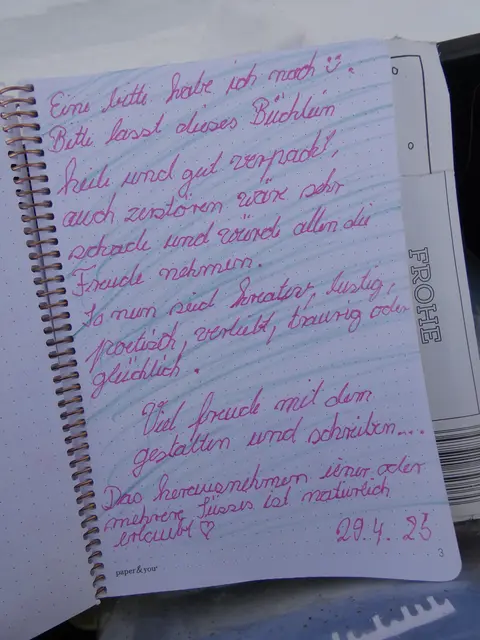 Eine bitte habe ich noch ü.
Bitte lasst dieses Büchlein
heile und gut verpackt,
auch zerstören wäre sehr
schade und würde allen die
Freude nehmen.
So nun seid kreativ, lustig,
poetisch, verliebt, traurig oder
glücklich.
Viel freude mit dem
gestalten und schreiben...
Das herausnehmen einer oder
mehrere ist natürlich
erlaubt ♡
29.4.23
paper&you
3
FROHE